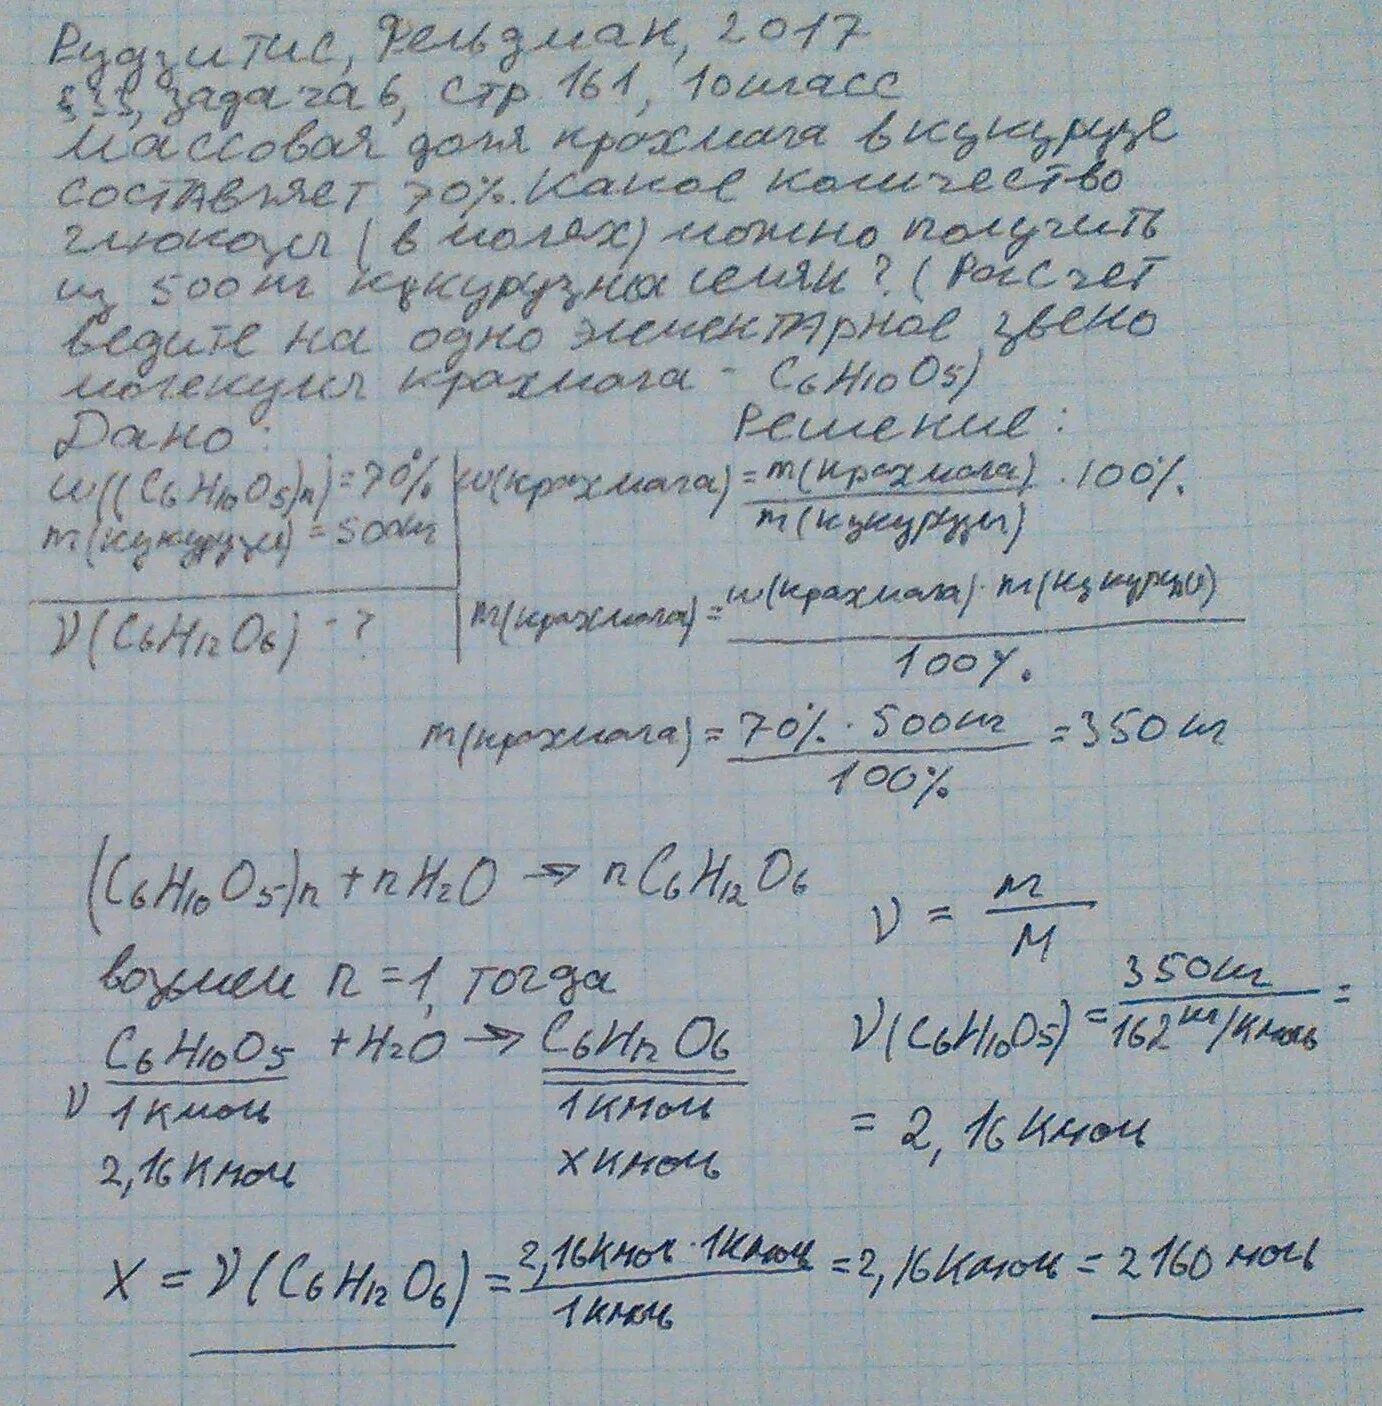 Рудзитис, Фельдман, 2017
§33, задача 6, стр 161, 10 класс
Массовая доля крахмала в кукурузе
составляет 70%. Какое количество
глюкозы (в молях) можно получить
из 500 кг кукурузных семян? (Рассчет
ведите на одно элементарное звено
молекулы крахмала - C₆H₁₀O₅)
Дано:
w((C₆H₁₀O₅)n) = 70%
m(кукурузы) = 500кг
ν(C₆H₁₂O₆) - ?
Решение:
w(крахмала) = m(крахмала) / m(кукурузы) · 100%
m(крахмала) = w(крахмала) · m(кукурузы) / 100%
m(крахмала) = 70% · 500кг / 100% = 350 кг
(C₆H₁₀O₅)n + nH₂O → nC₆H₁₂O₆
возьмем n = 1, тогда
C₆H₁₀O₅ + H₂O → C₆H₁₂O₆
ν 1 кмоль 1 кмоль
2,16 кмоль x кмоль
ν = m / M
ν(C₆H₁₀O₅) = 350кг / 162 кг/кмоль =
= 2,16 кмоль
x = ν(C₆H₁₂O₆) = 2,16кмоль · 1кмоль / 1кмоль = 2,16 кмоль = 2160 моль